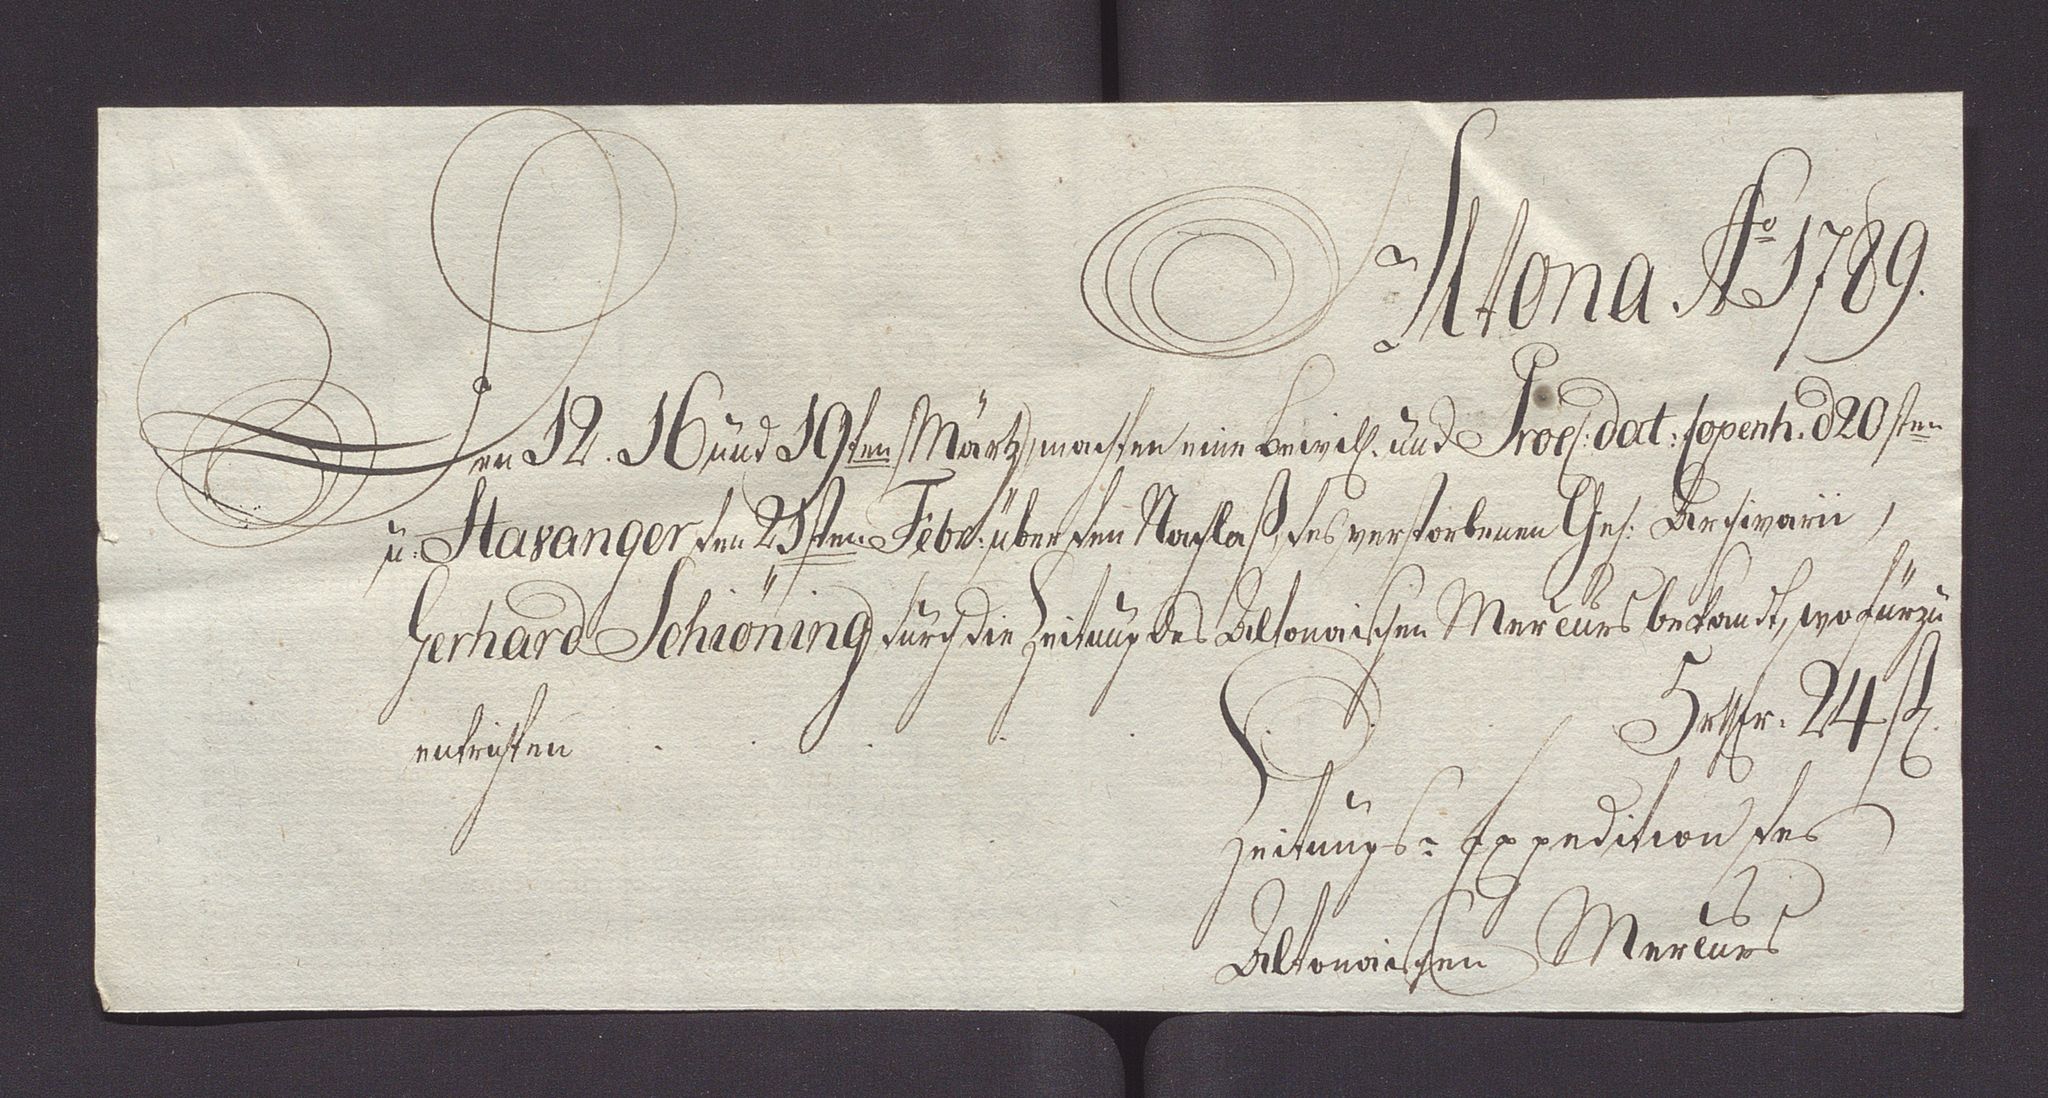 Altona Ao 1789.
Den 12. 16 und 19ten Märtz machten eine bewill. und Procl: dat: Copenh. d 20sten
u: Stavanger den 25sten Febr: über den Nachlaß des verstorbenen Geh: Archivarii,
Gerhard Schiöning durch die Zeitung des Altonaischen Mercurs bekandt, wofür zu
entrichten . . . . . 5 rthlr. 24 ß.
Zeitungs-Expedition des
Altonaischen Mercurs